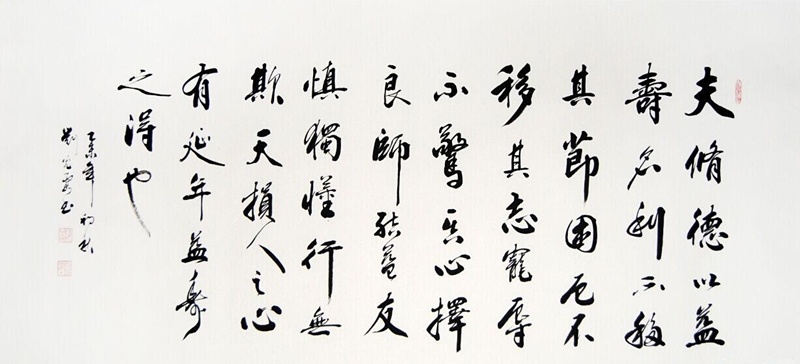 夫脩德以益
壽名利不移
其節困厄不
移其志寵辱
不驚其心擇
良師結益友
慎獨慬行無
欺天損人之心
有延年益壽
之得也
乙未年初秋
劉書